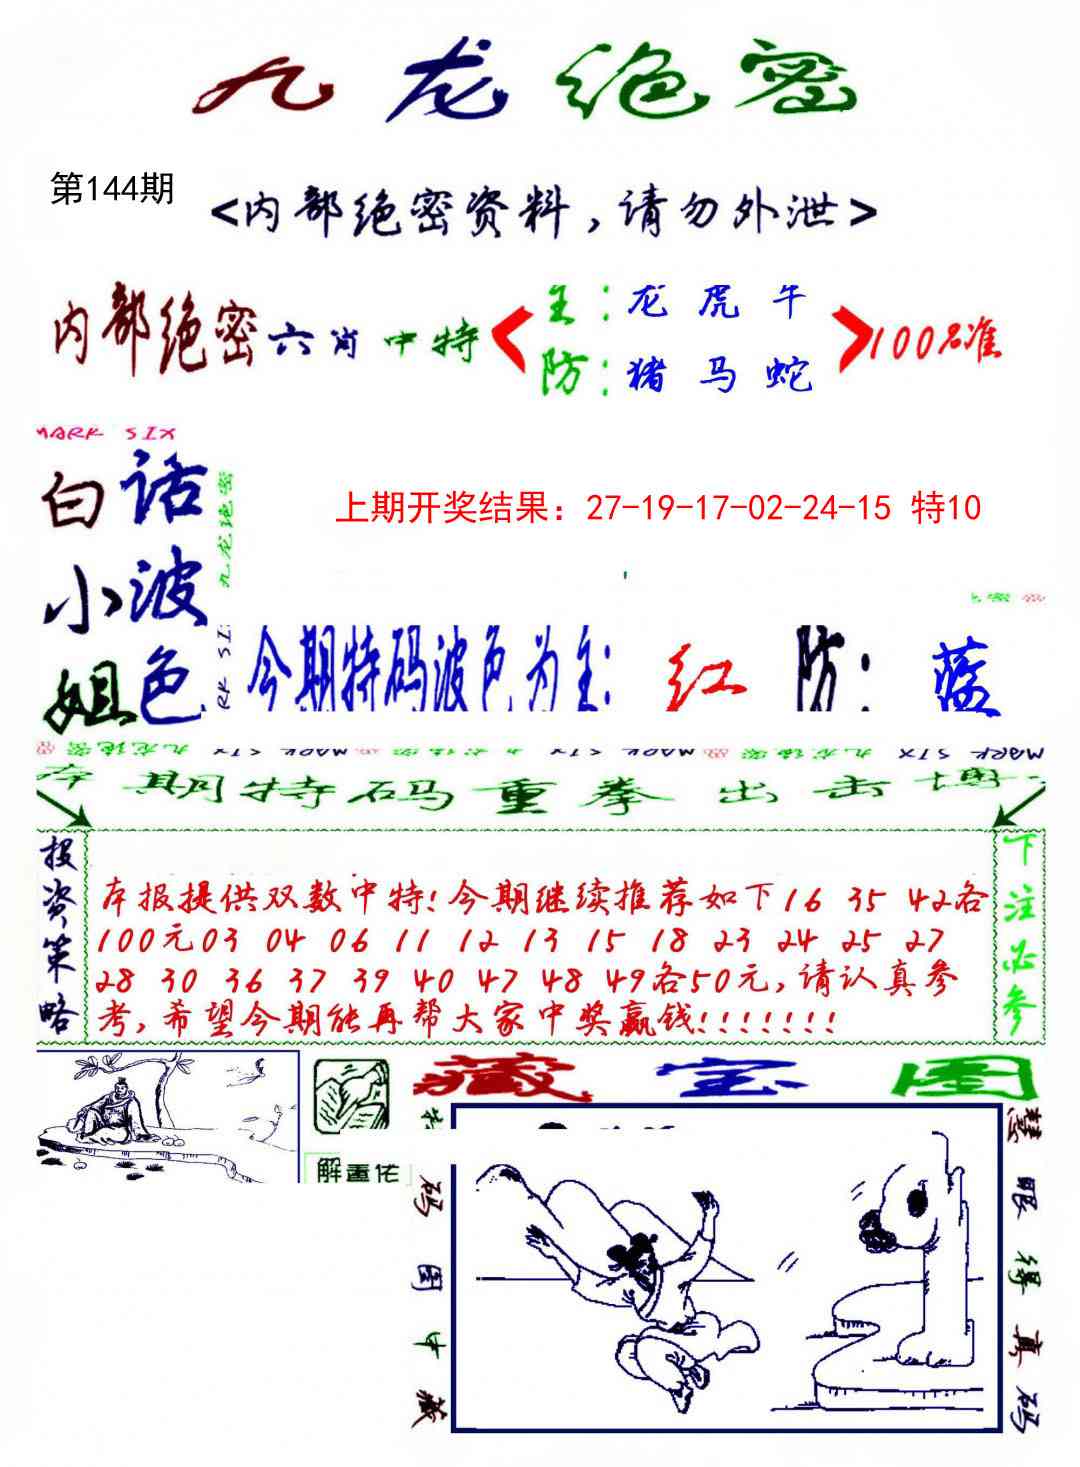 九龙绝密
第144期
<内部绝密资料,请勿外泄>
内部绝密六肖中特
主:龙 虎 牛
防:猪 马 蛇
100%准
MARK SIX
白话
小波
姐色
九龙绝密
上期开奖结果：27-19-17-02-24-15 特10
今期特码波色为主: 红 防: 蓝
本期特码重拳出击博
投资策略
本报提供双数中特!今期继续推荐如下16 35 42各
100元03 04 06 11 12 13 15 18 23 24 25 27
28 30 36 37 39 40 47 48 49各50元,请认真参
考,希望今期能再帮大家中奖赢钱!!!!!!!
下注必参
藏宝图
解画佬
码图中藏
慧眼得真码